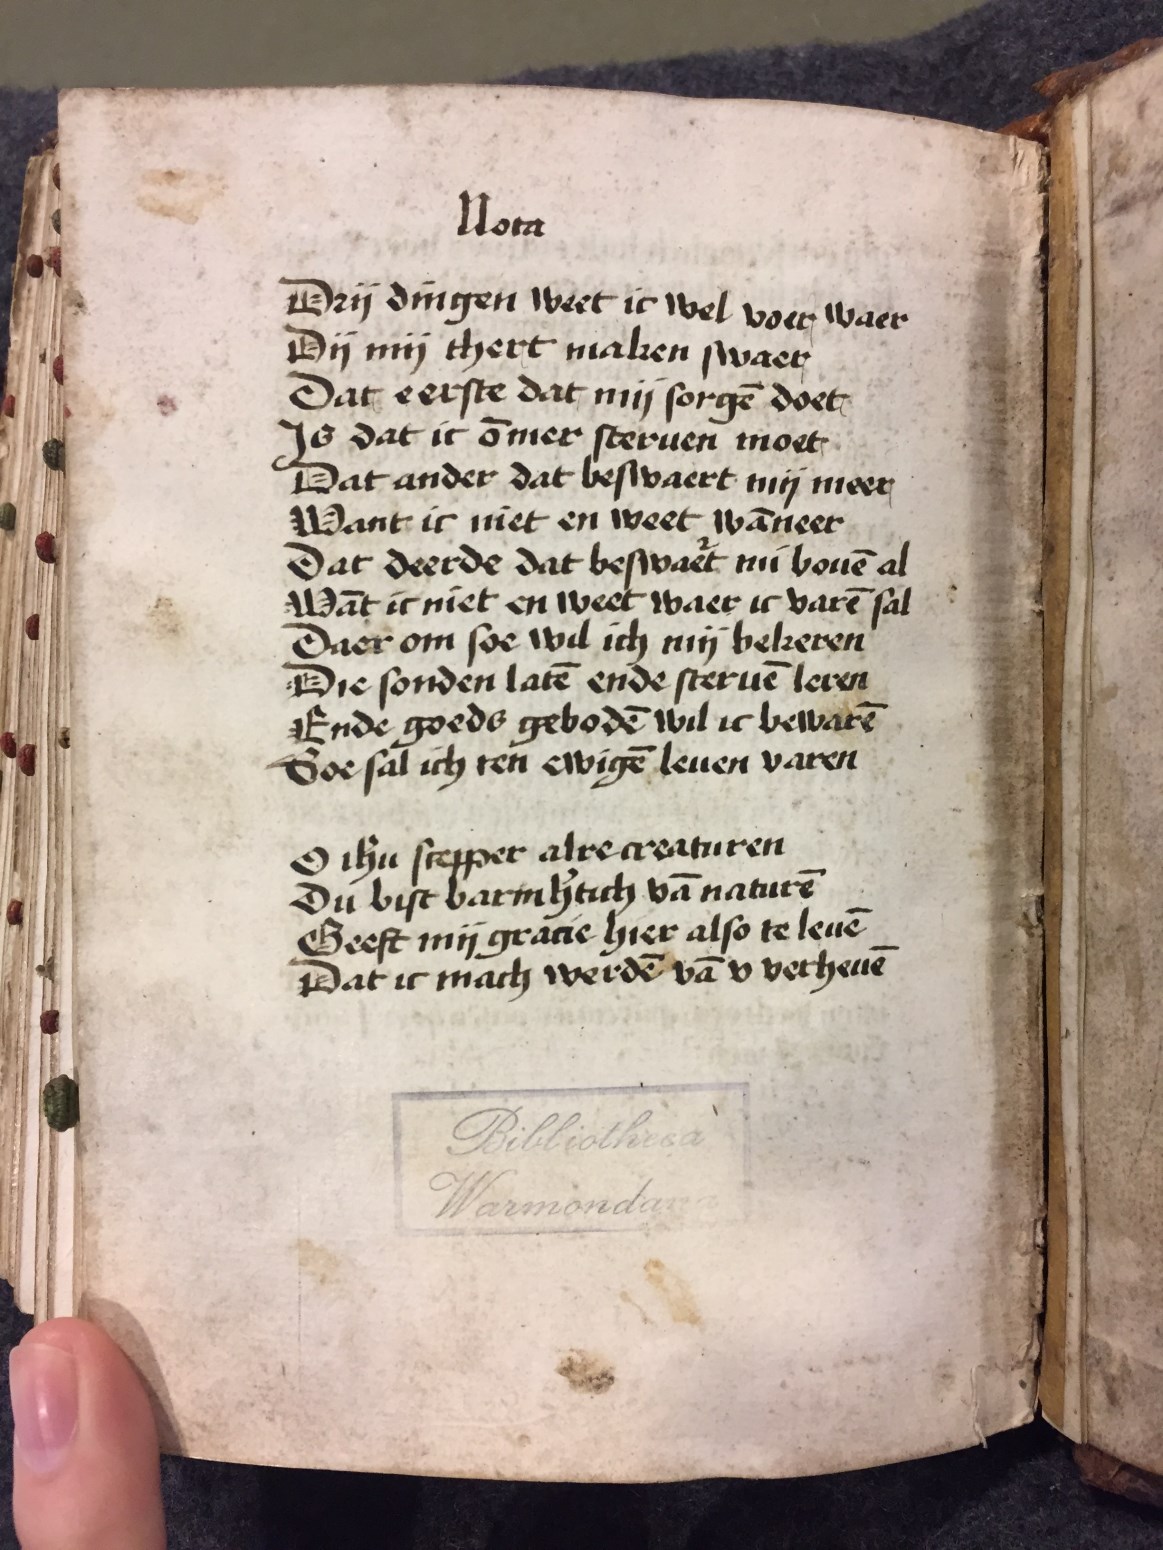 Nota
Drij dingen weet ic wel voer waer
Dij mij thert maken swaer
Dat eerste dat mij sorgē doet
Is dat ic ōmer steruen moet
Dat ander dat beswaert mij meer
Want ic niet en weet wāneer
Dat deerde dat beswaert mi bouē al
Wāt ic niet en weet waer ic varē sal
Daer om soe wil ich mij bekeren
Die sonden latē ende steruē leren
Ende goeds gebodē wil ic bewarē
Soe sal ich ten ewigē leuen varen
O ihū scepper alre creaturen
Du bist barmh'tich vā naturē
Geeft mij gracie hier also te leuē
Dat ic mach werdē vā v verheuē
Bibliotheca
Warmondana